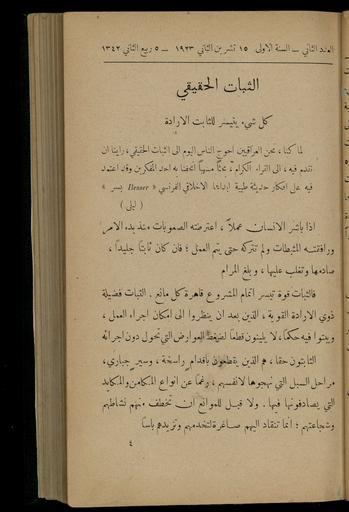 العدد الثاني — السنة الاولى ١٥ تشرين الثاني ١٩٢٣ — ٥ ربيع الثاني ١٣٤٢
الثبات الحقيقي
كل شيء يتيسر للثابت الارادة
لما كنا، نحن العراقيين احوج الناس اليوم الى الثبات الحقيقي، رأينا ان
نقدم فيه، الى القراء الكرام، بحثًا مسهبًا اتحفنا به احد المفكرين وقد اعتمد
فيه على افكار حديثة طيبة ابداها الاخلاقي الفرنسي « Besser بسر »
( ليلى )
اذا باشر الانسان عملاً، اعترضته الصعوبات منذ بدء الامر
ورافقته المثبطات ولم تتركه حتى يتم العمل؛ فان كان ثابتًا جليدا،
صادمها وتغلب عليها، وبلغ المرام
فالثبات قوة تيسر اتمام المشروع قاهرة كل مانع. الثبات فضيلة
ذوي الارادة القوية، الذين بعد ان ينظروا الى امكان اجراء العمل،
ويبتوا فيه حكمًا، لا يلينون قطعًا لضغط العوارض التي تحول دون اجرائه
الثابتون حقا، هم الذين يقطعون باقدام راسخة، وسير جباري،
مراحل السبل التي نهجوها لانفسهم، رغمًا عن انواع المكامن والمكايد
التي يصادفونها فيها. ولا قبل للموانع ان تخطف منهم نشاطهم
وشجاعتهم؛ انما تنقاد اليهم صاغرة لتخدمهم وتزيدهم باسا
٤